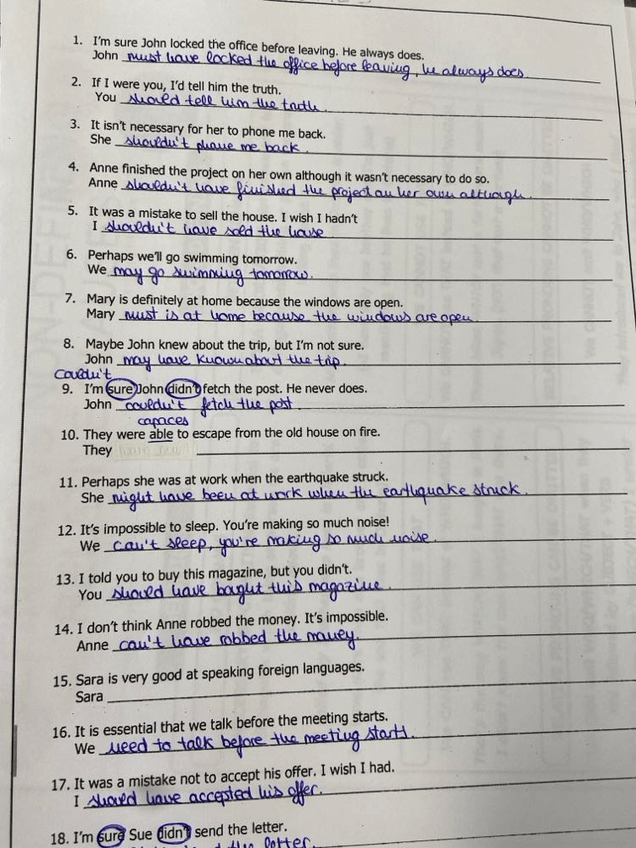 1. I'm sure John locked the office before leaving. He always does.
John must have locked the office before leaving, he always does
2. If I were you, I'd tell him the truth.
You should tell him the truth.
3. It isn't necessary for her to phone me back.
She shouldn't phone me back.
4. Anne finished the project on her own although it wasn't necessary to do so.
Anne shouldn't have finished the project on her own although.
5. It was a mistake to sell the house. I wish I hadn't
I shouldn't have sold the house
6. Perhaps we'll go swimming tomorrow.
We may go swimming tomorrow.
7. Mary is definitely at home because the windows are open.
Mary must is at home because the windows are open.
8. Maybe John knew about the trip, but I'm not sure.
John may have known about the trip.
Couldn't
9. I'm sure John didn't fetch the post. He never does.
John couldn't fetch the post.
capaces
10. They were able to escape from the old house on fire.
They
11. Perhaps she was at work when the earthquake struck.
She might have been at work when the earthquake struck.
12. It's impossible to sleep. You're making so much noise!
We can't sleep, you're making so much noise.
13. I told you to buy this magazine, but you didn't.
You should have bought this magazine.
14. I don't think Anne robbed the money. It's impossible.
Anne can't have robbed the money.
15. Sara is very good at speaking foreign languages.
Sara
16. It is essential that we talk before the meeting starts.
We need to talk before the meeting start.
17. It was a mistake not to accept his offer. I wish I had.
I should have accepted his offer.
18. I'm sure Sue didn't send the letter.
the letter.